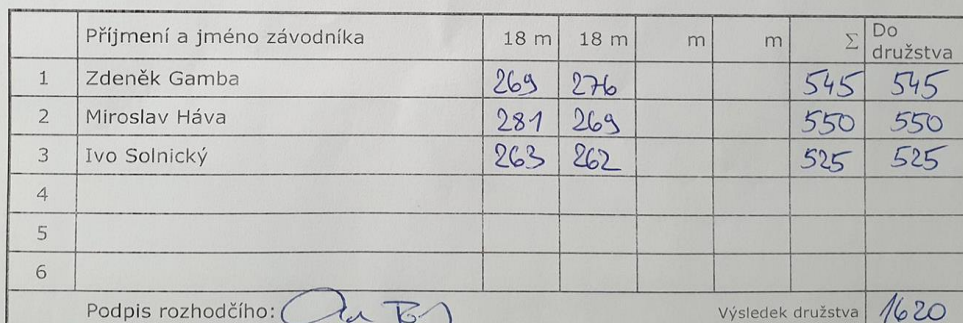 Příjmení a jméno závodníka 18 m 18 m m m Σ Do družstva
1 Zdeněk Gamba 269 276 545 545
2 Miroslav Háva 281 269 550 550
3 Ivo Solnický 263 262 525 525
4
5
6
Podpis rozhodčího: Výsledek družstva 1620